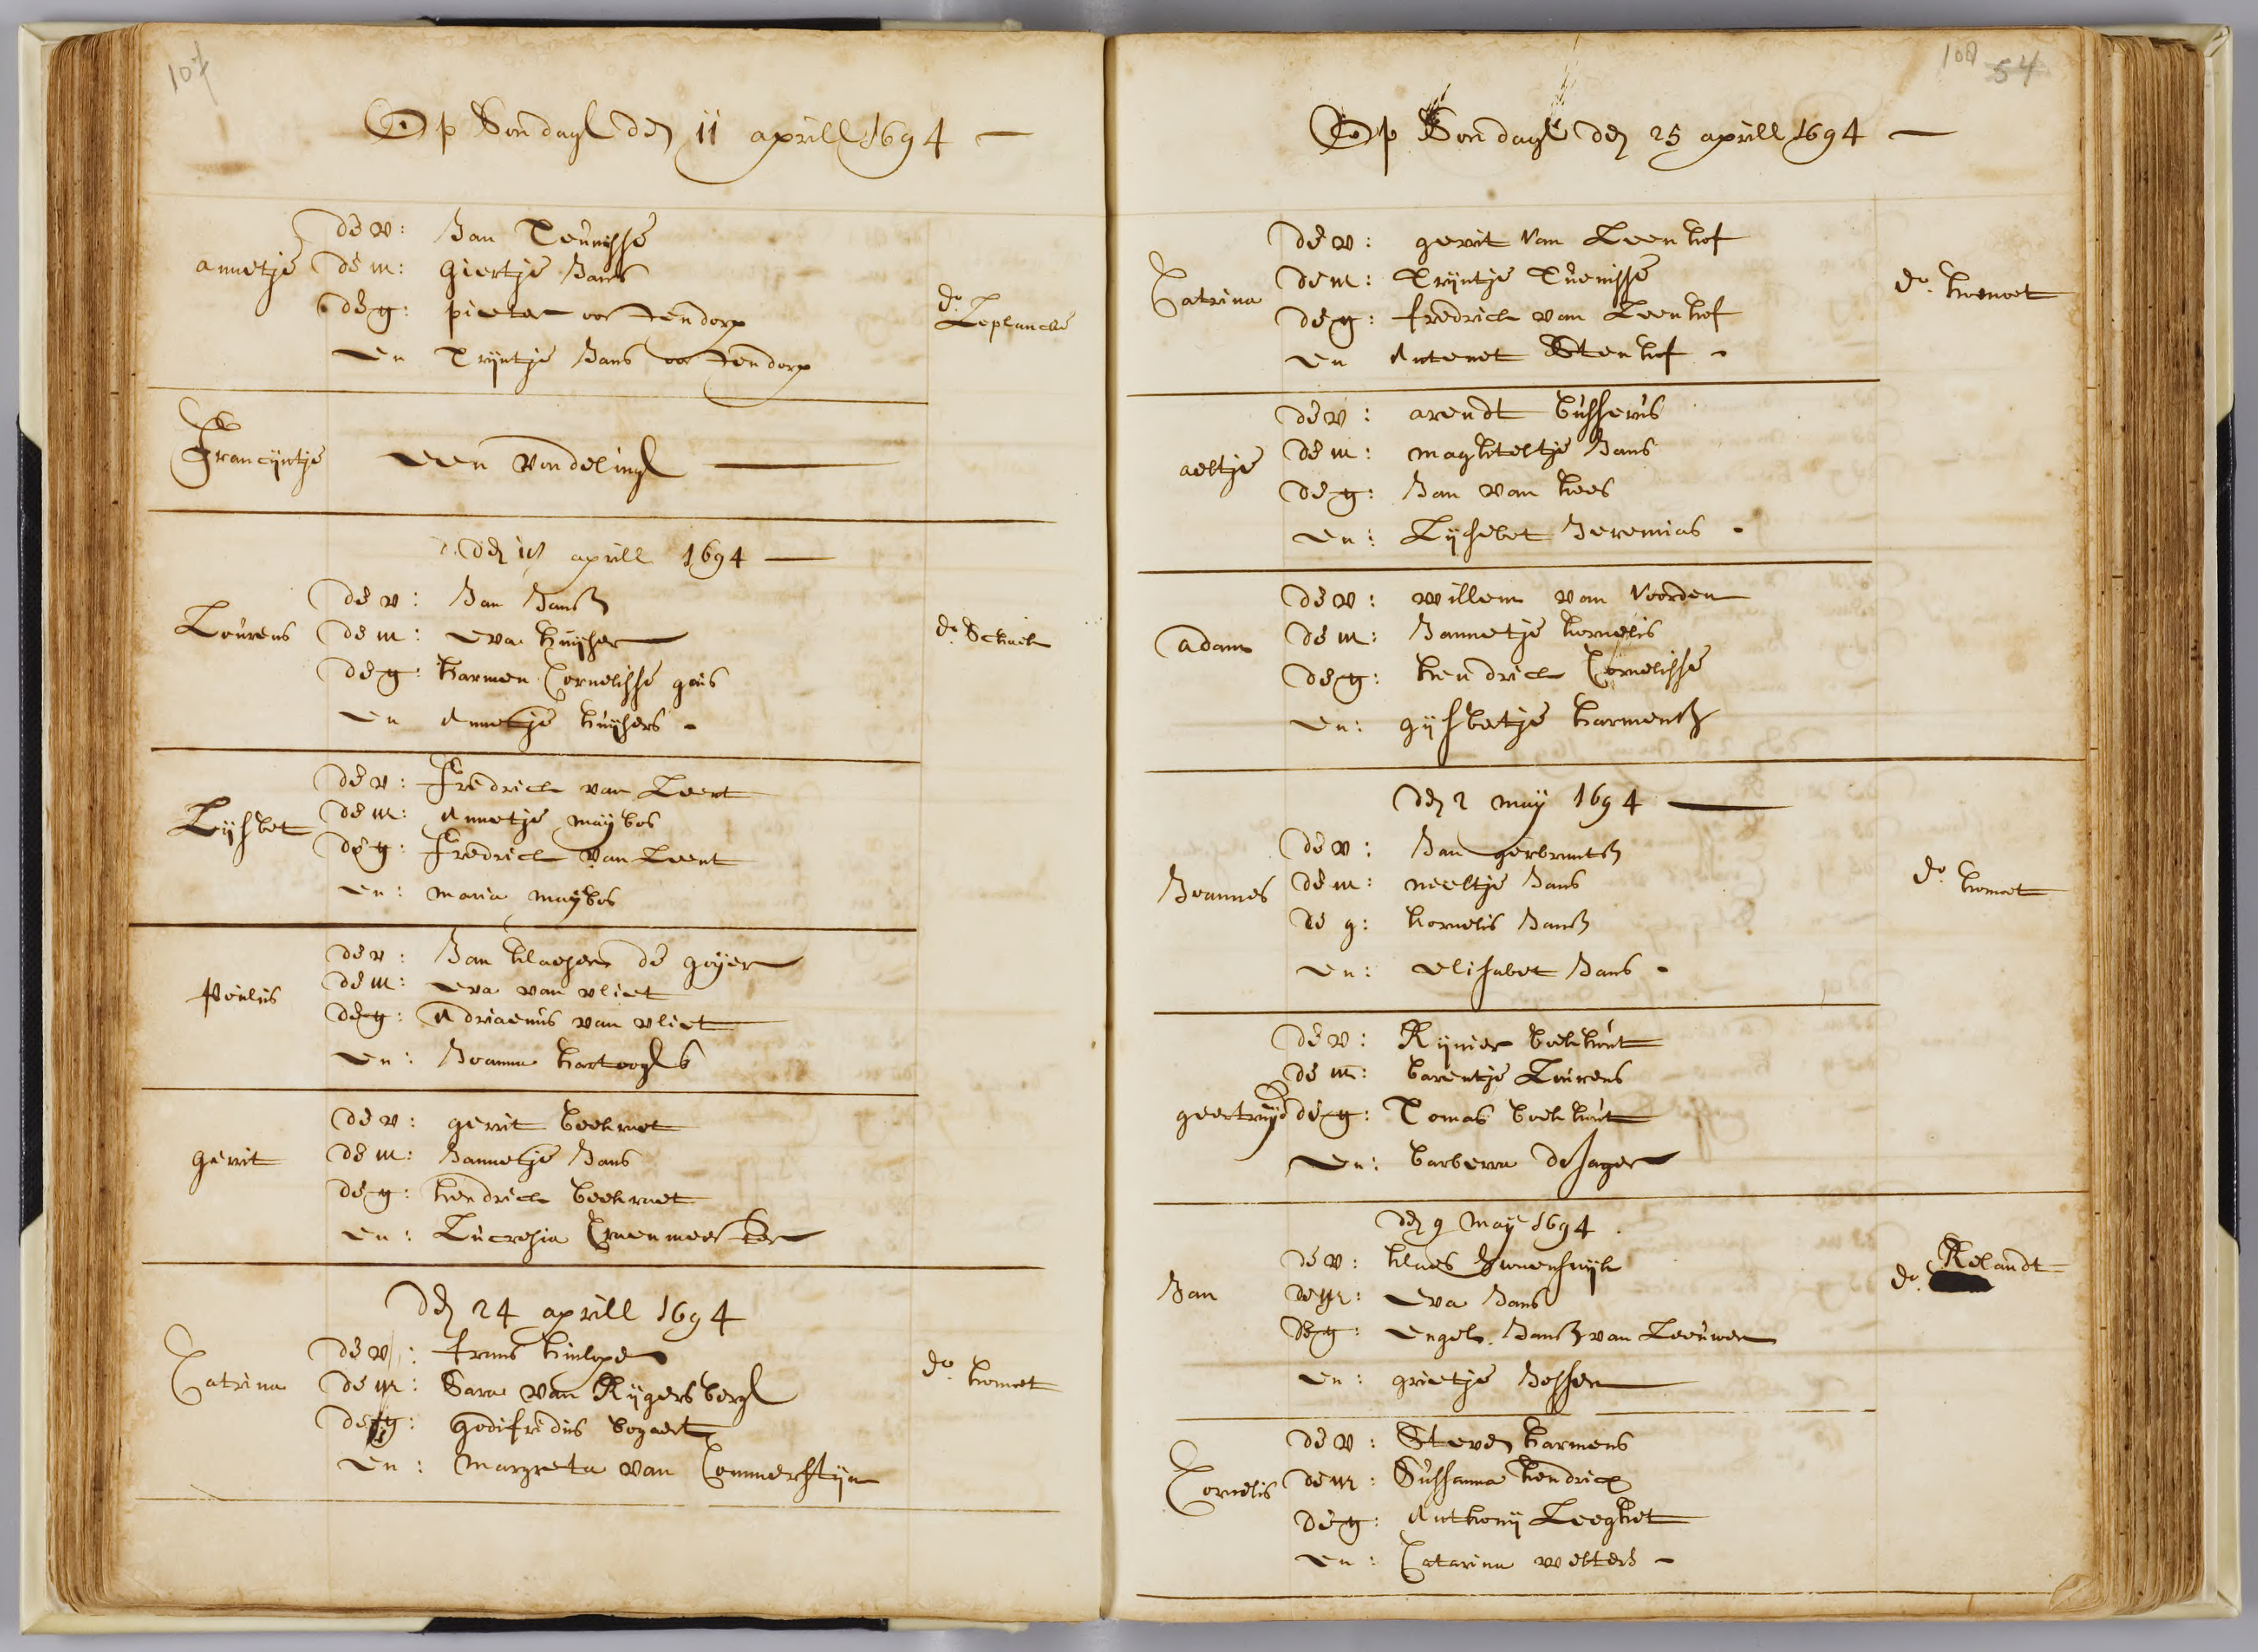 107
Op Sondagh den 11 aprill 1694
annetje
de v: Jan Teunisse
de m: Giertje Jans
de g: pieter oostendorp
en Trijntje Jans oostendorp
do. Leplancke
Francijntje een vondelingh
den aprill 1694
Lourens
de v: Jan Jansz
de m: eva huijser
de g: harmen Cornelisse gois
en Annetje huijsers
do. Schack
Lijsbet
de v: Fredrick van Leent
de m: Annetje maijbos
de g: Fredrick van Leent
en: maria maijbos
Poulus
de v: Jan klaesen de goijer
de m: eva van vliet
de g: Adriaenus van vliet
en: Joanna hartooghs
gerrit
de v: gerrit beekmet
de m: Jannetje Jans
de g: hendrick beekmet
en: Lucresia
den 24 aprill 1694
Catrina
de v: frans hinlope
de m: Sara van Rijgersbergh
de g: godifridus bogaert
en: Margreta van Commerstijn
do. homoet
108 54
Op Sondagh den 25 aprill 1694
Catrina
de v: gerrit van Leenhof
de m: Trijntje Tuenisse
de g: fredrick van Leenhof
en Antenet Steenhof
do. homoet
aeltje
de v: arendt busserus
de m: maghteltje Jans
de g: Jan van hees
en: Lijsebet Jeremias
adam
de v: willem van Noorden
de m: Jannetje kornelis
de g: hendrick Cornelisse
en: gijsbetje harmensz
den 2 maij 1694
Joannes
de v: Jan gerbrantsz
de m: neeltje Jans
de g: kornelis Jansz
en: elisabet Jans
do. homoet
geertruijd
de v: Rijnier boekhout
de m: barentje Lourens
de g: Tomas boekhout
en: barberra de Jager
den 9 Maij 1694
Jan
de v: klaes Swaenswijk
de m: eva Jans
de g: engel Jansz van Leeuwen
en: grietje Jossen
do. Relandt
Cornelis
de v: Steven harmens
de m: Sussanna hendrix
de g: Anthonij Leeghet
en: Catarina welters